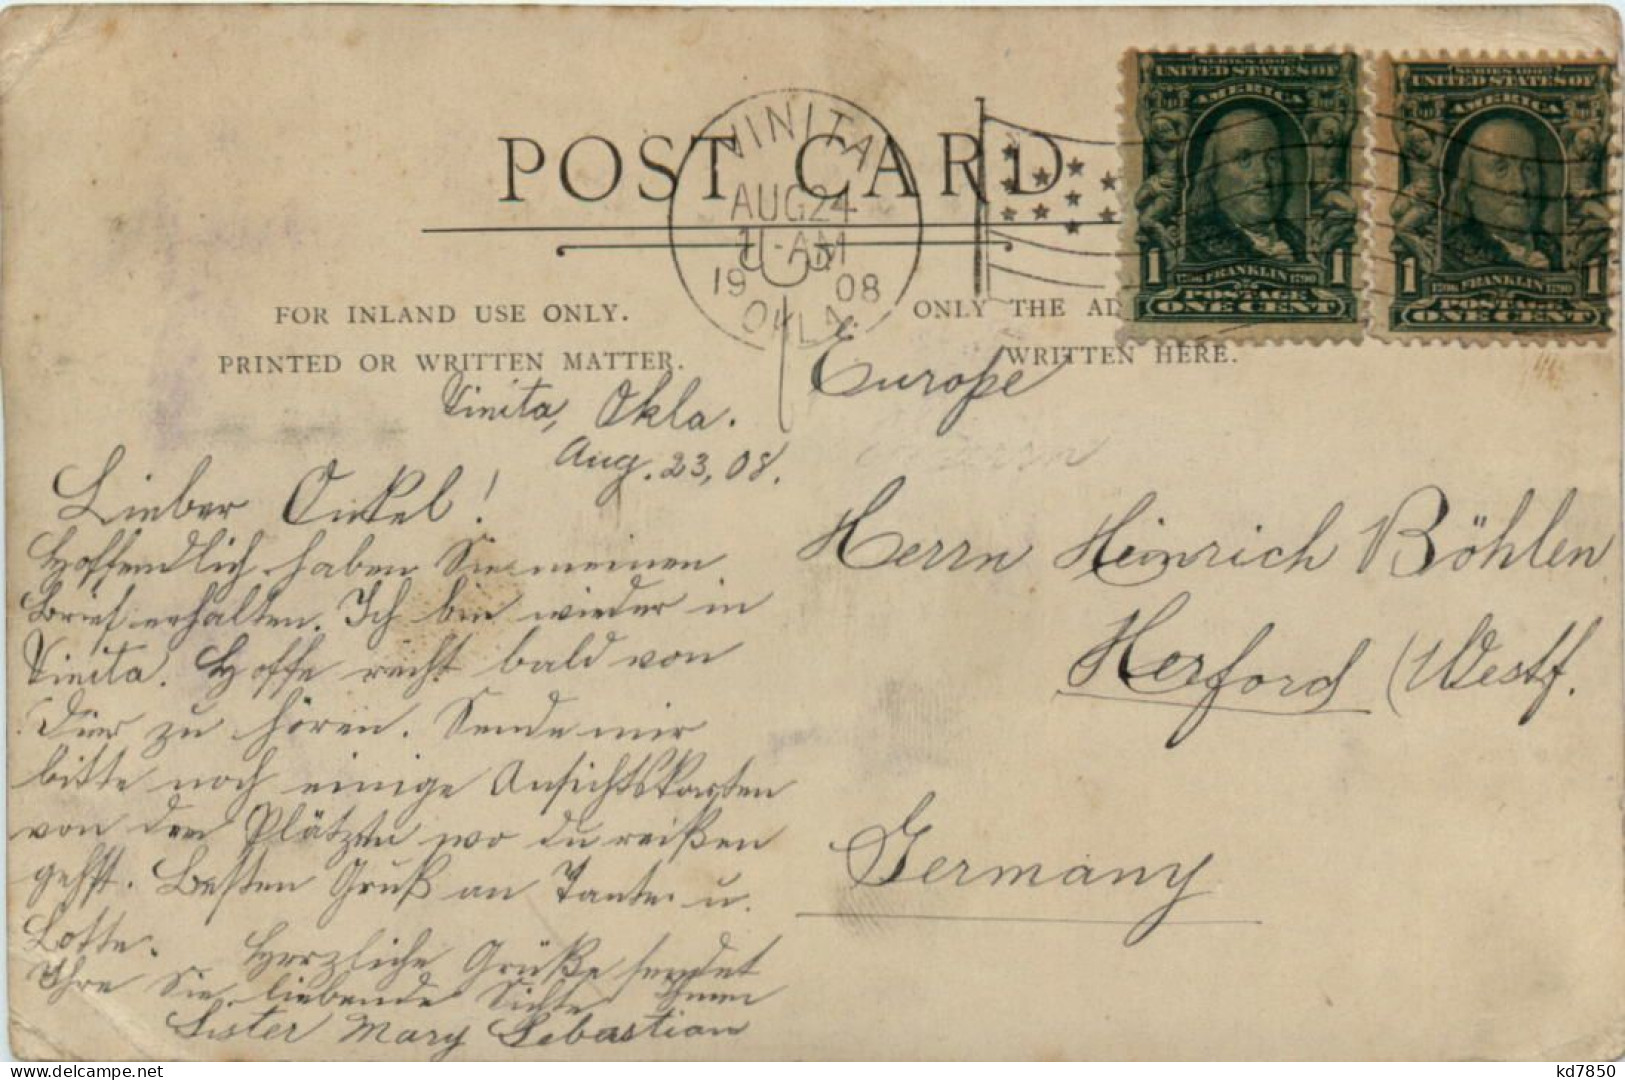 POST CARD
VINITA
AUG 24
-AM
1908
OKLA.
SERIES 1902
UNITED STATES OF
AMERICA
1 1706 FRANKLIN 1790 1
POSTAGE
ONE CENT
SERIES 1902
UNITED STATES OF
AMERICA
1 1706 FRANKLIN 1790 1
POSTAGE
ONE CENT
FOR INLAND USE ONLY.
PRINTED OR WRITTEN MATTER.
ONLY THE AD
WRITTEN HERE.
Vinita, Okla.
Aug. 23, 08.
Lieber Onkel!
Hoffendlich haben Sie meinen
Brief erhalten. Ich bin wieder in
Vinita. Hoffe recht bald von
zu hören. Sende mir
bitte noch einige Ansichtskarten
von den Plätzen wo du reißen
gehst. Besten Gruß an Tante u.
Lotte. Herzliche Grüße sendet
Ihre Sie liebende
Sister Mary Sebastian
Europe
Herrn Heinrich Böhlen
Herford (Westf.
Germany
kd7850